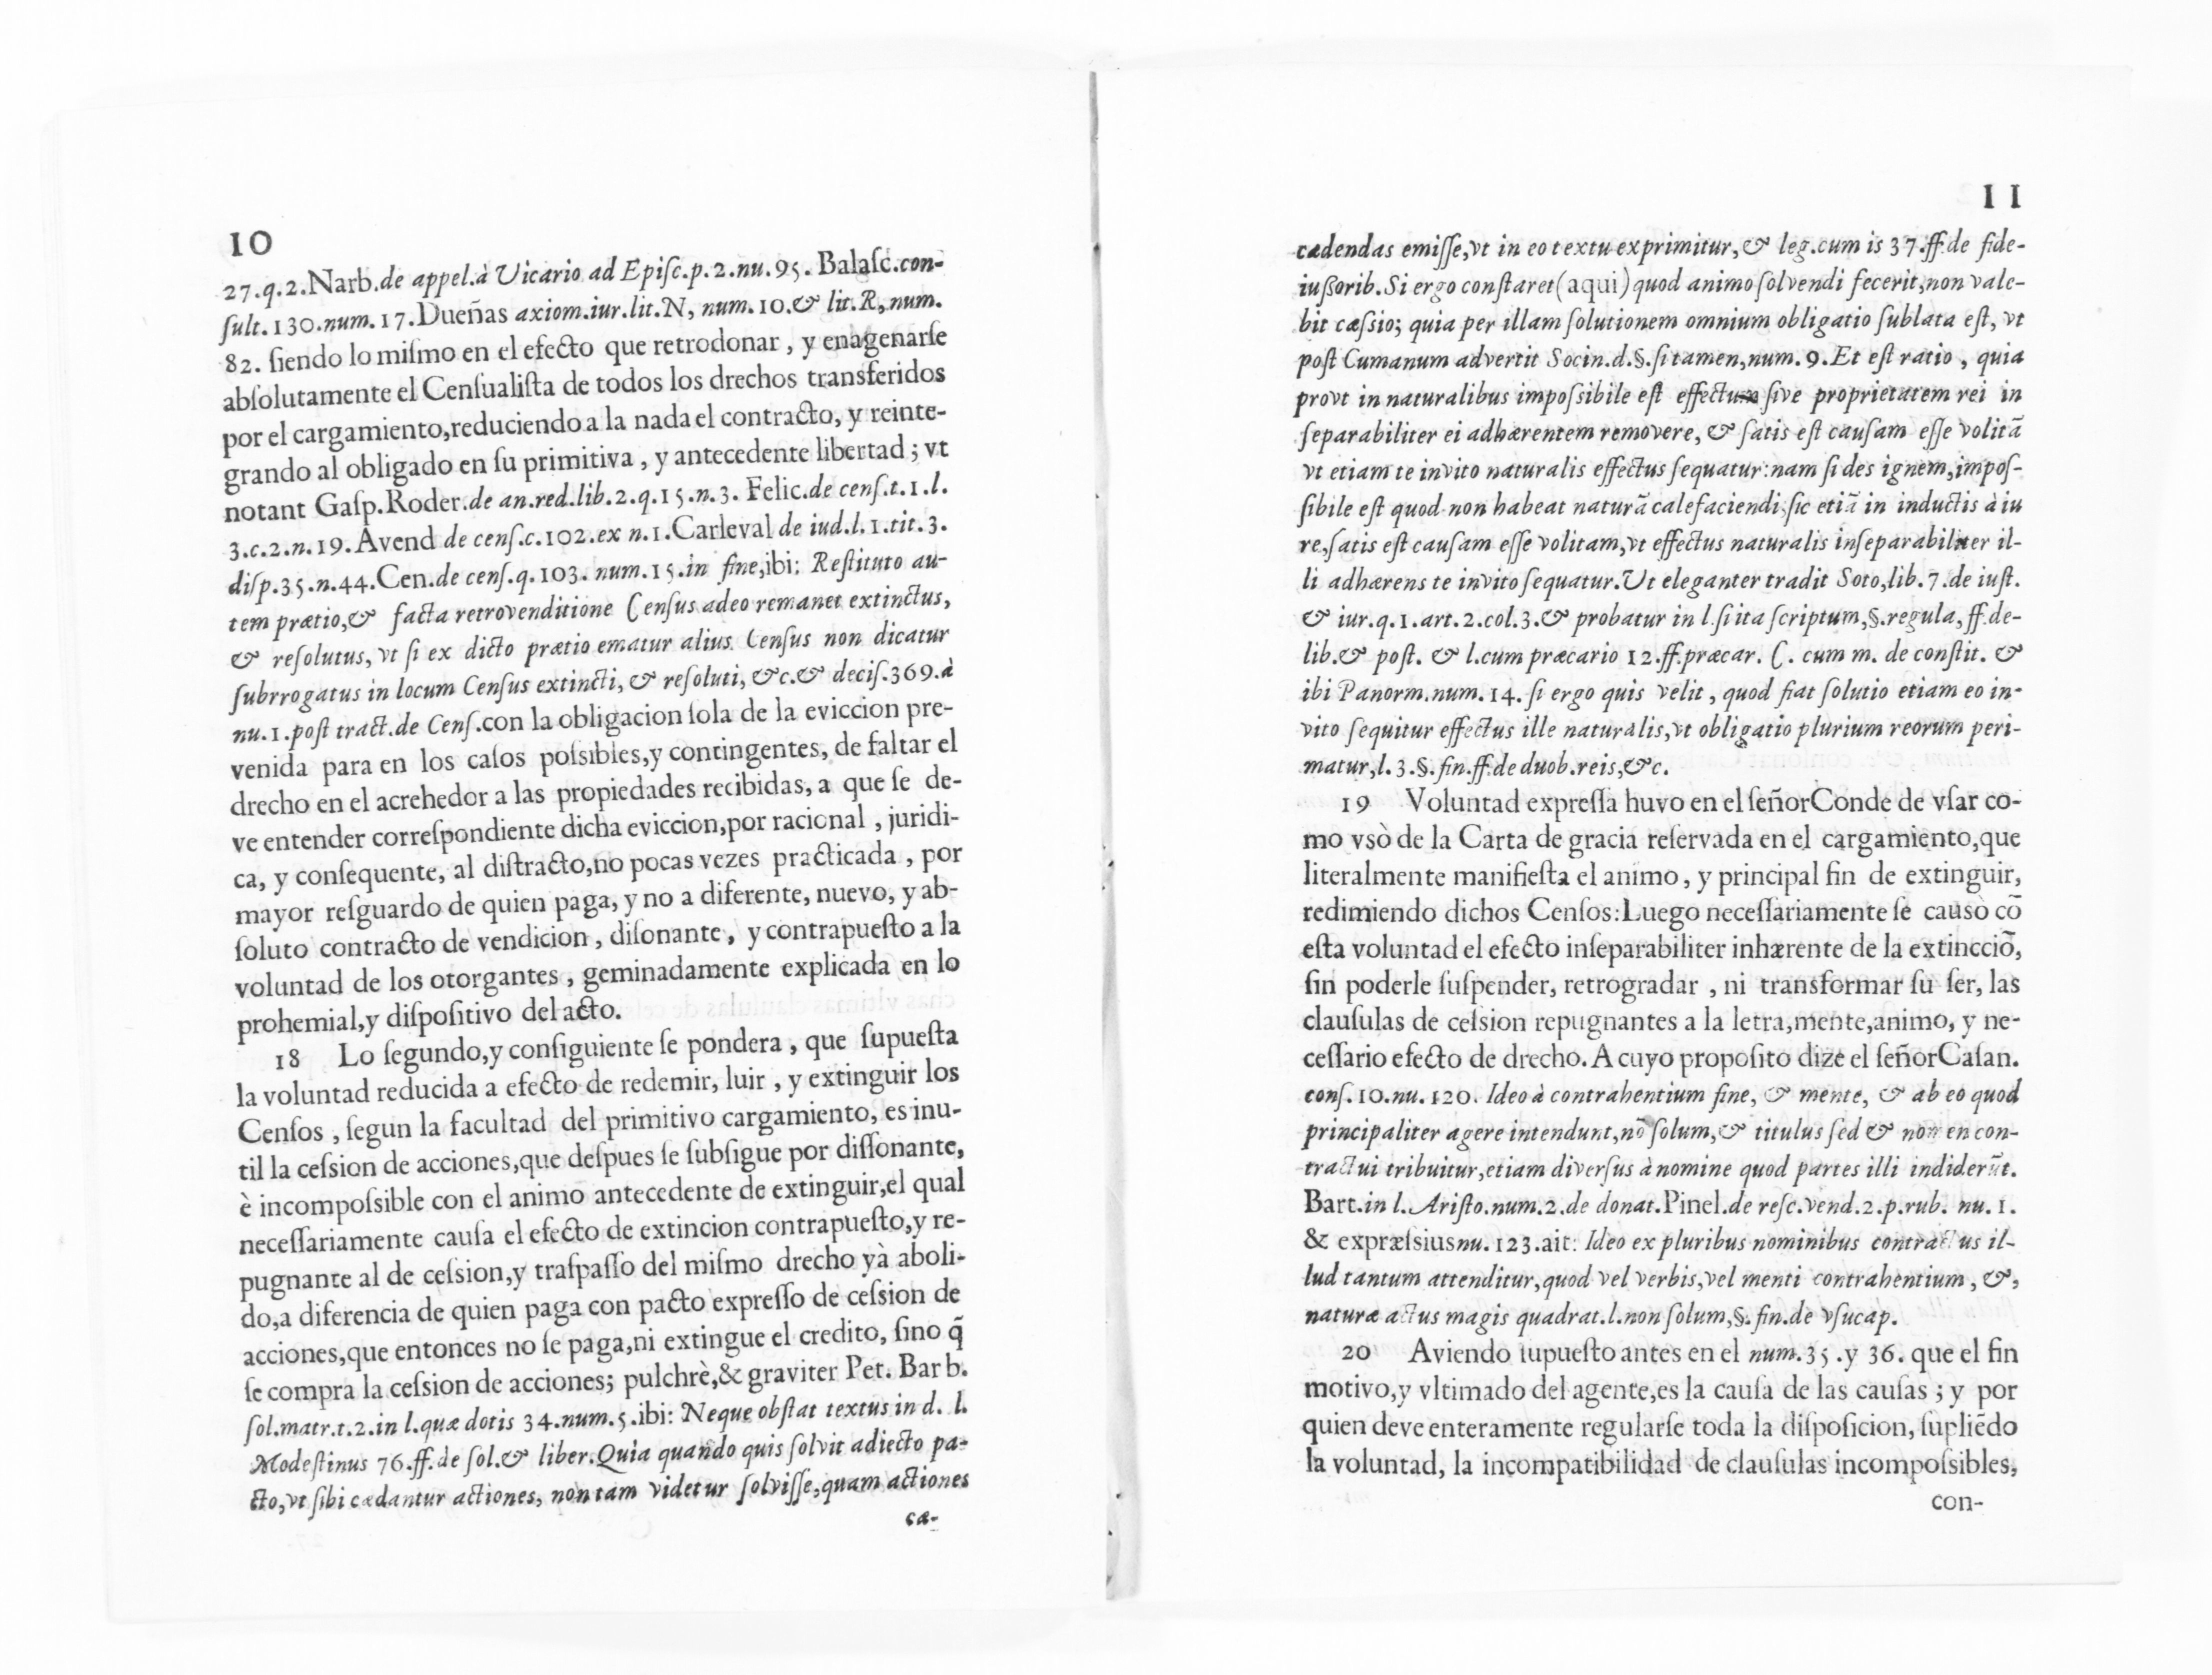 10
27.q.2.Narb.de appel.à Vicario ad Episc.p.2.nu.95. Balasc.con-
sult.130.num.17.Dueñas axiom.iur.lit.N, num.10.& lit.R, num.
82. siendo lo mismo en el efecto que retrodonar, y enagenarse
absolutamente el Censualista de todos los drechos transferidos
por el cargamiento,reduciendo a la nada el contracto, y reinte-
grando al obligado en su primitiva, y antecedente libertad; vt
notant Gasp.Roder.de an.red.lib.2.q.15.n.3. Felic.de cens.t.1.l.
3.c.2.n.19.Avend de cens.c.102.ex n.1.Carleval de iud.l.1.tit.3.
disp.35.n.44.Cen.de cens.q.103. num.15.in fine,ibi: Restituto au-
tem prætio,& facta retrovenditione Census adeo remanet extinctus,
& resolutus, vt si ex dicto prætio ematur alius Census non dicatur
subrrogatus in locum Census extincti, & resoluti, &c.& decis.369.à
nu.1.post tract.de Cens.con la obligacion sola de la eviccion pre-
venida para en los casos possibles,y contingentes, de faltar el
drecho en el acrehedor a las propiedades recibidas, a que se de-
ve entender correspondiente dicha eviccion,por racional, juridi-
ca, y consequente, al distracto,no pocas vezes practicada, por
mayor resguardo de quien paga, y no a diferente, nuevo, y ab-
soluto contracto de vendicion, disonante, y contrapuesto a la
voluntad de los otorgantes, geminadamente explicada en lo
prohemial,y dispositivo del acto.
18 Lo segundo,y consiguiente se pondera, que supuesta
la voluntad reducida a efecto de redemir, luir, y extinguir los
Censos, segun la facultad del primitivo cargamiento, es inu-
til la cession de acciones,que despues se subsigue por dissonante,
è incompossible con el animo antecedente de extinguir,el qual
necessariamente causa el efecto de extincion contrapuesto,y re-
pugnante al de cession,y traspasso del mismo drecho yà aboli-
do,a diferencia de quien paga con pacto expresso de cession de
acciones,que entonces no se paga,ni extingue el credito, sino q̃
se compra la cession de acciones; pulchrè,& graviter Pet. Barb.
sol.matr.t.2.in l.quæ dotis 34.num.5.ibi: Neque obstat textus in d. l.
Modestinus 76.ff.de sol.& liber.Quia quando quis solvit adiecto pa-
cto,vt sibi cædantur actiones, non tam videtur solvisse,quam actiones
cæ-
11
cædendas emisse,vt in eo textu exprimitur,& leg.cum is 37.ff.de fide-
iussorib.Si ergo constaret(aqui)quod animo solvendi fecerit,non vale-
bit cæssio; quia per illam solutionem omnium obligatio sublata est, vt
post Cumanum advertit Socin.d.§.si tamen,num.9.Et est ratio, quia
provt in naturalibus impossibile est effectum sive proprietatem rei in
separabiliter ei adhærentem removere, & satis est causam esse volitã
vt etiam te invito naturalis effectus sequatur:nam si des ignem,impos-
sibile est quod non habeat naturã calefaciendi;sic etiã in inductis à iu
re,satis est causam esse volitam,vt effectus naturalis inseparabiliter il-
li adhærens te invito sequatur.Ut eleganter tradit Soto,lib.7.de iust.
& iur.q.1.art.2.col.3.& probatur in l.si ita scriptum,§.regula, ff.de-
lib.& post. & l.cum præcario 12.ff.præcar. C. cum m. de constit. &
ibi Panorm.num.14. si ergo quis velit, quod fiat solutio etiam eo in-
vito sequitur effectus ille naturalis,vt obligatio plurium reorum peri-
matur,l.3.§.fin.ff.de duob.reis,&c.
19 Voluntad expressa huvo en el señor Conde de vsar co-
mo vsò de la Carta de gracia reservada en el cargamiento,que
literalmente manifiesta el animo, y principal fin de extinguir,
redimiendo dichos Censos:Luego necessariamente se causò cõ
esta voluntad el efecto inseparabiliter inhærente de la extincciõ,
sin poderle suspender, retrogradar, ni transformar su ser, las
clausulas de cession repugnantes a la letra,mente,animo, y ne-
cessario efecto de drecho. A cuyo proposito dize el señor Casan.
cons.10.nu.120. Ideo à contrahentium fine, & mente, & ab eo quod
principaliter agere intendunt,nõ solum,& titulus sed & non en con-
tractui tribuitur,etiam diversus à nomine quod partes illi indiderũt.
Bart.in l. Aristo.num.2.de donat.Pinel.de resc.vend.2.p.rub. nu.1.
& expræssius nu.123.ait: Ideo ex pluribus nominibus contractus il-
lud tantum attenditur,quod vel verbis,vel menti contrahentium, &,
naturæ actus magis quadrat.l.non solum,§.fin.de vsucap.
20 Aviendo supuesto antes en el num.35.y 36. que el fin
motivo,y vltimado del agente,es la causa de las causas; y por
quien deve enteramente regularse toda la disposicion, supliẽdo
la voluntad, la incompatibilidad de clausulas incompossibles,
con-